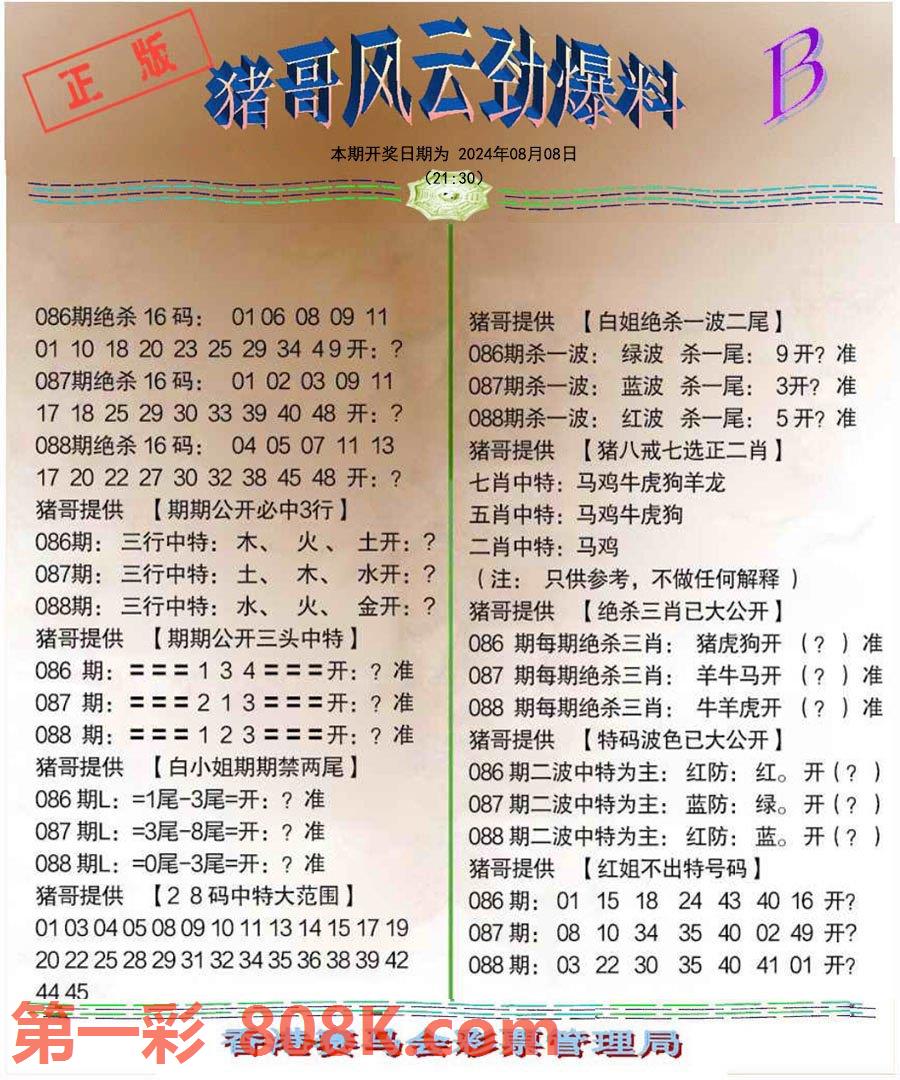 正版
猪哥风云劲爆料
B
本期开奖日期为 2024年08月08日
(21:30)
086期绝杀 16 码： 01 06 08 09 11
01 10 18 20 23 25 29 34 4 9 开：?
087期绝杀 16 码： 01 02 03 09 11
17 18 25 29 30 33 39 40 48 开：?
088期绝杀 16 码： 04 05 07 11 13
17 20 22 27 30 32 38 45 48 开：?
猪哥提供 【期期公开必中3行】
086期： 三行中特：木、 火 、 土开：?
087期： 三行中特：土、 木、 水开：?
088期： 三行中特：水、 火、 金开：?
猪哥提供 【期期公开三头中特】
086 期：===1 3 4===开：? 准
087 期：===2 1 3===开：? 准
088 期：===1 2 3===开：? 准
猪哥提供 【白小姐期期禁两尾】
086 期L：=1尾-3尾=开：? 准
087 期L：=3尾-8尾=开：? 准
088 期L：=0尾-3尾=开：? 准
猪哥提供 【2 8码中特大范围】
01 03 04 05 08 09 10 11 13 14 15 17 19
20 22 25 28 29 31 32 34 35 36 38 39 42
44 45
猪哥提供 【白姐绝杀一波二尾】
086期杀一波： 绿波 杀一尾： 9 开? 准
087期杀一波： 蓝波 杀一尾： 3开? 准
088期杀一波： 红波 杀一尾： 5 开? 准
猪哥提供 【猪八戒七选正二肖】
七肖中特：马鸡牛虎狗羊龙
五肖中特：马鸡牛虎狗
二肖中特：马鸡
（注： 只供参考，不做任何解释 ）
猪哥提供 【绝杀三肖已大公开】
086 期每期绝杀三肖： 猪虎狗开 （? ）准
087 期每期绝杀三肖： 羊牛马开 （? ）准
088 期每期绝杀三肖： 牛羊虎开 （? ）准
猪哥提供 【特码波色已大公开】
086 期二波中特为主：红防：红。开（? ）
087 期二波中特为主：蓝防：绿。开（? ）
088 期二波中特为主：红防：蓝。开（? ）
猪哥提供 【红姐不出特号码】
086 期： 01 15 18 24 43 40 16 开?
087 期： 08 10 34 35 40 02 49 开?
088 期： 03 22 30 35 40 41 01 开?
第一彩 808K.com
香港赛马会彩票管理局